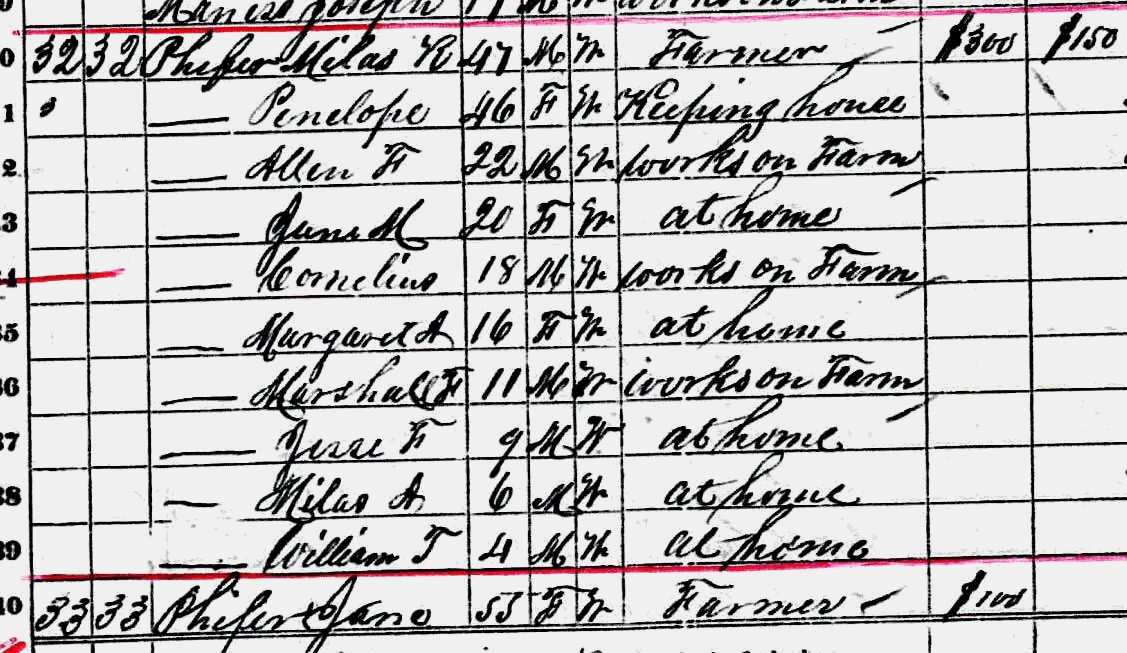 Joseph 17 M W
0 32 32 Phifer Milas R 47 M W Farmer $300 $150
1 " — Penelope 46 F W Keeping house
2 — Allen F 22 M W works on Farm
3 — Jane M 20 F W at home
— Cornelius 18 M W works on Farm
35 — Margaret A 16 F W at home
36 — Marshall F 11 M W works on Farm
37 — Jesse F 9 M W at home
38 — Milas A 6 M W at home
39 — William T 4 M W at home
40 33 33 Phifer Jane 53 F W Farmer $100